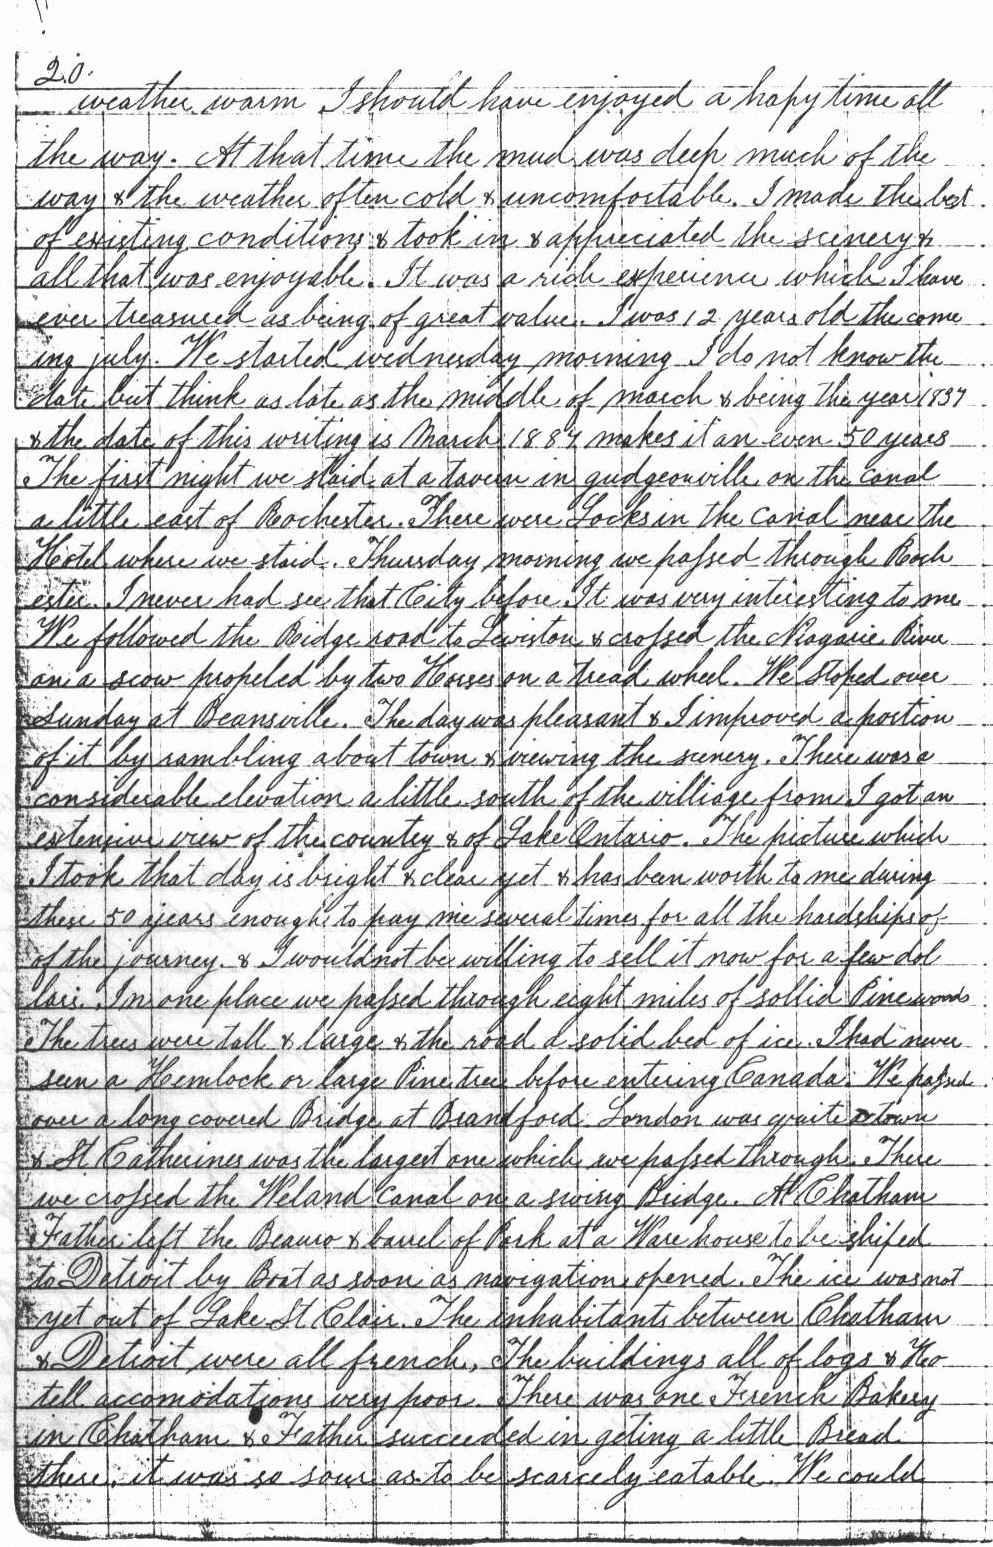 20.
weather warm I should have enjoyed a hapy time all
the way. At that time the mud was deep much of the
way & the weather often cold & uncomfortable. I made the best
of existing conditions & took in & appreciated the scenery &
all that was enjoyable. It was a rich experience which I have
ever treasured as being of great value. I was 12 years old the come
ing july. We started wednesday morning I do not know the
date but think as late as the middle of march & being the year 1837
& the date of this writing is March 1887 makes it an even 50 years
The first night we staid at a tavern in gudgeonville on the canal
a little east of Rochester. There were Locks in the canal near the
Hotel where we staid. Thursday morning we passed through Roch
ester. I never had see that City before. It was very interesting to me
We followed the Ridge road to Lewiston & crossed the Niagarie River
on a scow propeled by two Horses on a tread wheel. We stoped over
Sunday at Beansville. The day was pleasant & I improved a portion
of it by rambling about town & viewing the scenery. There was a
considerable elevation a little south of the villiage from I got an
extensive view of the country & of Lake Ontario. The picture which
I took that day is bright & clear yet & has been worth to me during
these 50 years enough to pay me several times for all the hardships of
of the journey & I would not be willing to sell it now for a few dol
lars. In one place we passed through eight miles of sollid Pine woods
The trees were tall & large & the road a solid bed of ice. I had never
seen a Hemlock or large Pine tree before entering Canada. We passed
over a long covered Bridge at Brandford. London was quite a town
& St Catherines was the largest one which we passed through. There
we crossed the Weland Canal on a swing Bridge. At Chatham
Father left the Beauro & barrel of Pork at a Ware house to be shiped
to Detroit by Boat as soon as navigation opened. The ice was not
yet out of Lake St Clair. The inhabitants between Chatham
& Detroit were all french, The buildings all of logs & Ho
tell accomodations very poor. There was one French Bakery
in Chatham & Father succeeded in geting a little Bread
there, it was so sour as to be scarcely eatable. We could